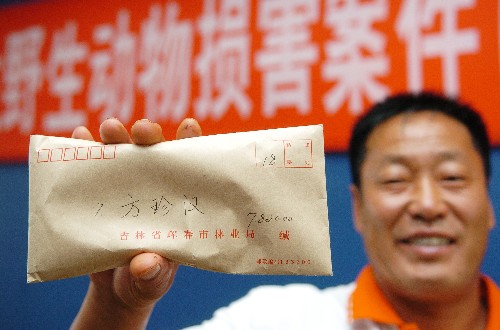 野生动物损害案件
18
方珍汉
7800.00
吉林省珲春市林业局 缄